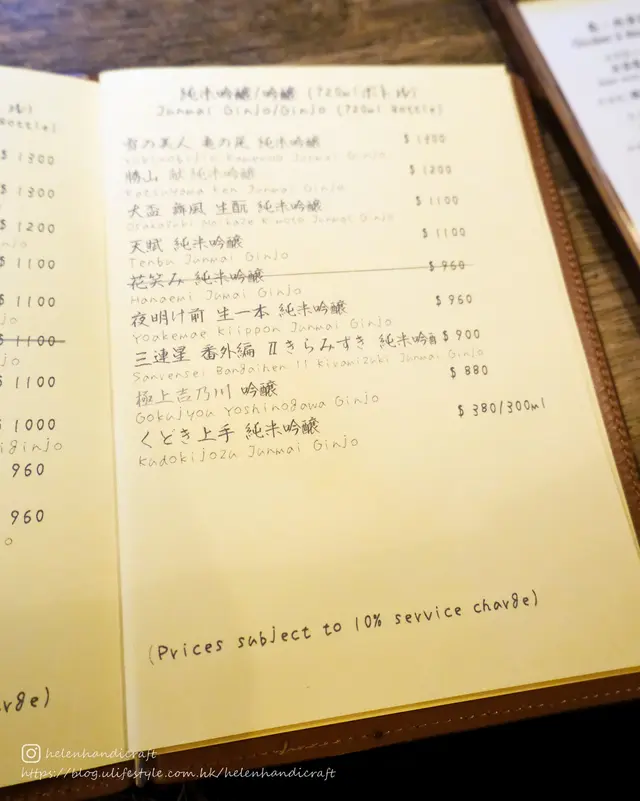 ル)
Bottle)
$ 1300
$ 1300
$ 1200
njo
$ 1100
$ 1100
jo
$ 1100
jo
$ 1100
$ 1000
iginjo
960
960
o
rge)
純米吟醸/吟醸 (720mlボトル)
Junmai Ginjo/Ginjo (720ml Bottle)
雪の美人 亀の尾 純米吟醸 $ 1400
Yukinobijin Kamenoo Junmai Ginjo
勝山 献 純米吟醸 $ 1200
Katsuyama Ken Junmai Ginjo
大盃 舞風 生酛 純米吟醸 $ 1100
Osakazuki Maikaze Kimoto Junmai Ginjo
天賦 純米吟醸 $ 1100
Tenbu Junmai Ginjo
花笑み 純米吟醸 $ 960
Hanaemi Jumai Ginjo
夜明け前 生一本 純米吟醸 $ 960
Yoakemae Kiippon Junmai Ginjo
三連星 番外編 Ⅱ きらみずき 純米吟醸 $ 900
Sanrensei Bangaihen II Kiramizuki Junmai Ginjo
極上吉乃川 吟醸 $ 880
Gokujyou Yoshinogawa Ginjo
くどき上手 純米吟醸 $ 380/300ml
Kudokijozu Junmai Ginjo
(Prices subject to 10% service charge)
helenhandicraft
https://blog.ulifestyle.com.hk/helenhandicraft